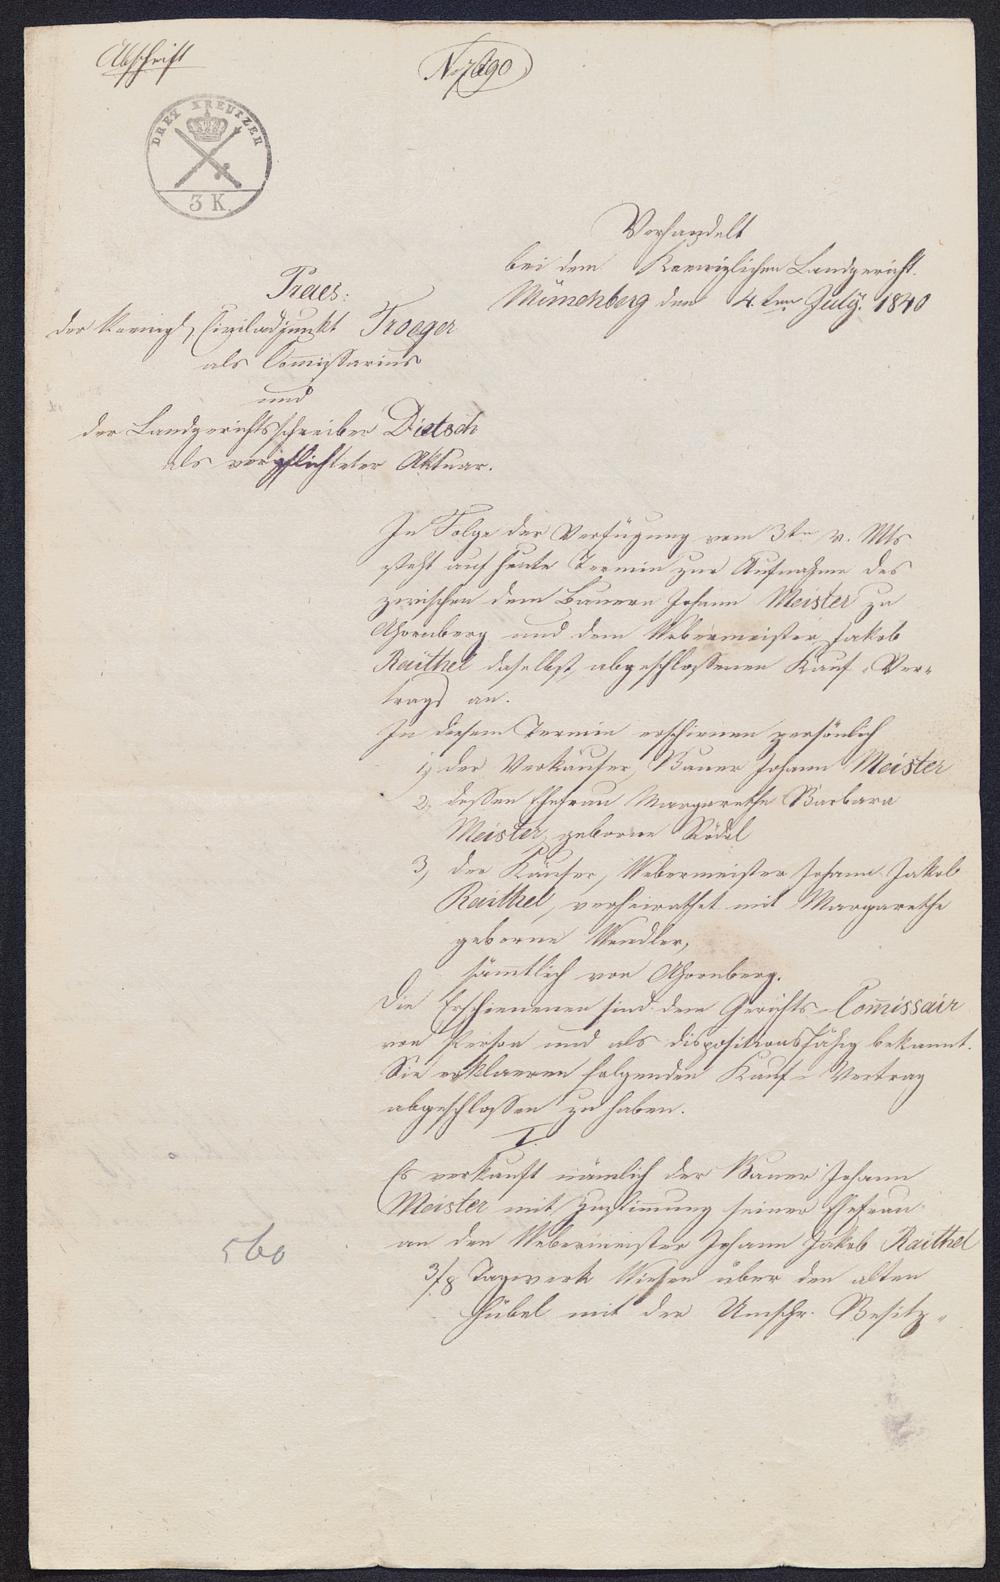 Abschrift
No 7690
DREY KREUTZER
3 K.
Verhandelt
bei dem Koeniglichen Landgericht
Münchberg den 4. ten July. 1840
Praes:
der Koenigl. Civiladjunkt Troeger
als Com̄issarius
und
der Landgerichtsschreiber Dietsch
als verpflichteter Aktuar.
In Folge der Verfügung vom 3ten v. Mts
steht auf heute Termin zur Aufnahme des
zwischen dem Bauern Johann Meister zu
Ahornberg und dem Webermeister Jakob
Raithel daselbst abgeschlossenen Kauf-Ver-
trags an.
In diesem Termin erschienen persönlich
1, der Verkäufer, Bauer Johann Meister
2, dessen Ehefrau Margarethe Barbara
Meister, geborne Rödel
3, der Käufer, Webermeister Johann Jakob
Raithel, verheirathet mit Margarethe
geborne Wendler,
sämtlich von Ahornberg.
Die Erschienenen sind dem Gerichts-Com̄issair
von Person und als dispositionsfähig bekannt.
Sie erklaeren folgenden Kauf-Vertrag
abgeschlossen zu haben.
I.
Es verkauft nämlich der Bauer Johann
Meister mit Zustimmung seiner Ehefrau
an den Webermeister Johann Jakob Raithel
3/8 Tagwerk Wiesen über den alten
Hübel mit der Umschr. Besitz-
560